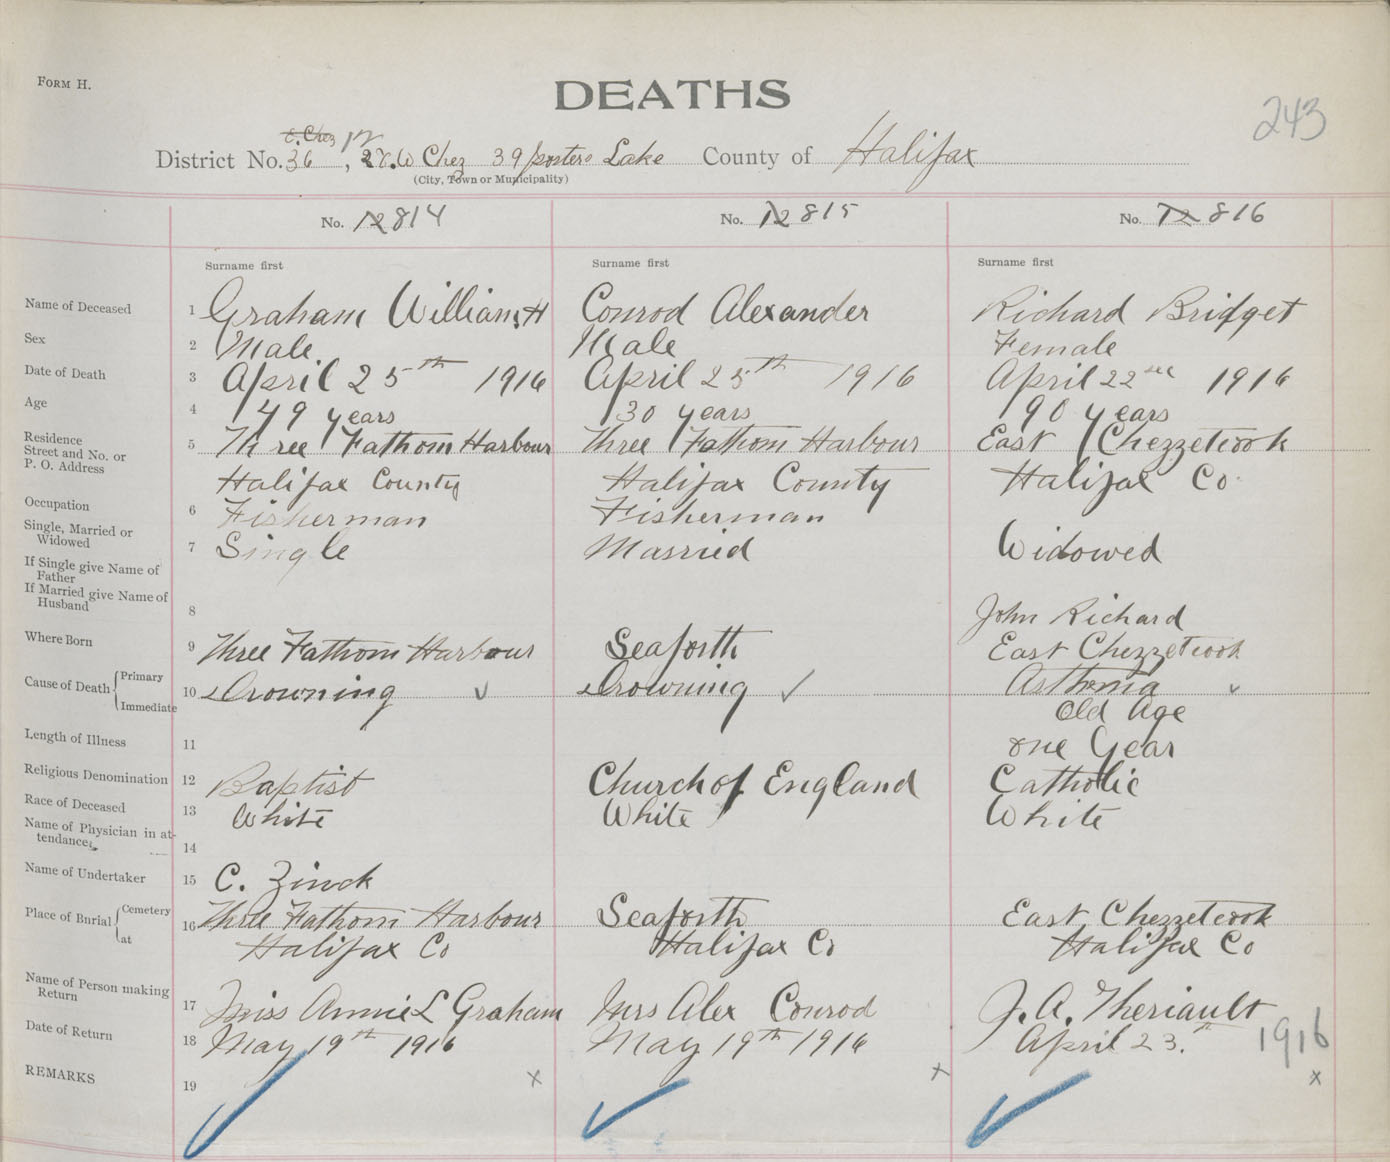 FORM H.
DEATHS
243
E. Chez
District No. 36, 28. W Chez 39 porters Lake County of Halifax
(City, Town or Municipality)
No. 12 814 No. 12 815 No. 12 816
Surname first Surname first Surname first
Name of Deceased 1 Graham William H Conrod Alexander Richard Bridget
Sex 2 Male Male Female
Date of Death 3 April 25th 1916 April 25th 1916 April 22 1916
Age 4 49 years 30 years 90 years
Residence Street and No. or P. O. Address 5 Three Fathom Harbour Three Fathom Harbour East Chezzetcook
Halifax County Halifax County Halifax Co
Occupation 6 Fisherman Fisherman
Single, Married or Widowed 7 Single Married Widowed
If Single give Name of Father
If Married give Name of Husband 8 John Richard
Where Born 9 Three Fathom Harbour Seaforth East Chezzetcook
Cause of Death { Primary 10 Drowning Drowning Asthma
Immediate Old Age
Length of Illness 11 one Year
Religious Denomination 12 Baptist Church of England Catholic
Race of Deceased 13 White White White
Name of Physician in attendance 14
Name of Undertaker 15 C. Zinck
Place of Burial { Cemetery 16 Three Fathom Harbour Seaforth East Chezzetcook
at Halifax Co Halifax Co Halifax Co
Name of Person making Return 17 Miss Annie L Graham Mrs Alex Conrod J. A. Theriault
Date of Return 18 May 19th 1916 May 19th 1916 April 23. 1916
REMARKS 19 x x x